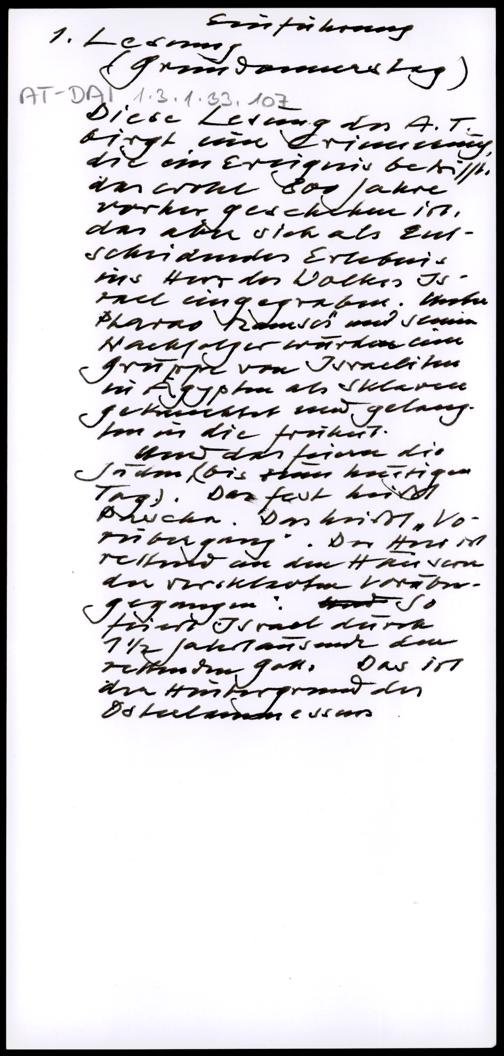 Einführung
1. Lesung
(Gründonnerstag)
AT-DAI 1.3.1.33.107
Diese Lesung des A.T.
birgt eine Erinnerung,
die ein Ereignis betrifft,
das wohl 800 Jahre
vorher geschehen ist,
das aber sich als Ent-
scheidendes Erlebnis
ins Herz des Volkes Is-
rael eingegraben. Unter
Pharao Ramses und seinem
Nachfolger wurden eine
Gruppe von Israeliten
in Ägypten als Sklaven
geknechtet und gelang-
ten in die Freiheit.
Und das feiern die
Juden (bis zum heutigen
Tag). Das Fest heißt
Pascha. Das heißt „Vo-
rübergang". Der Herr ist
rettend an den Häusern
der versklavten vorüber-
gegangen". So
feiert Israel durch
1 1/2 Jahrtausende den
rettenden Gott. Das ist
der Hintergrund des
Osterlammessens